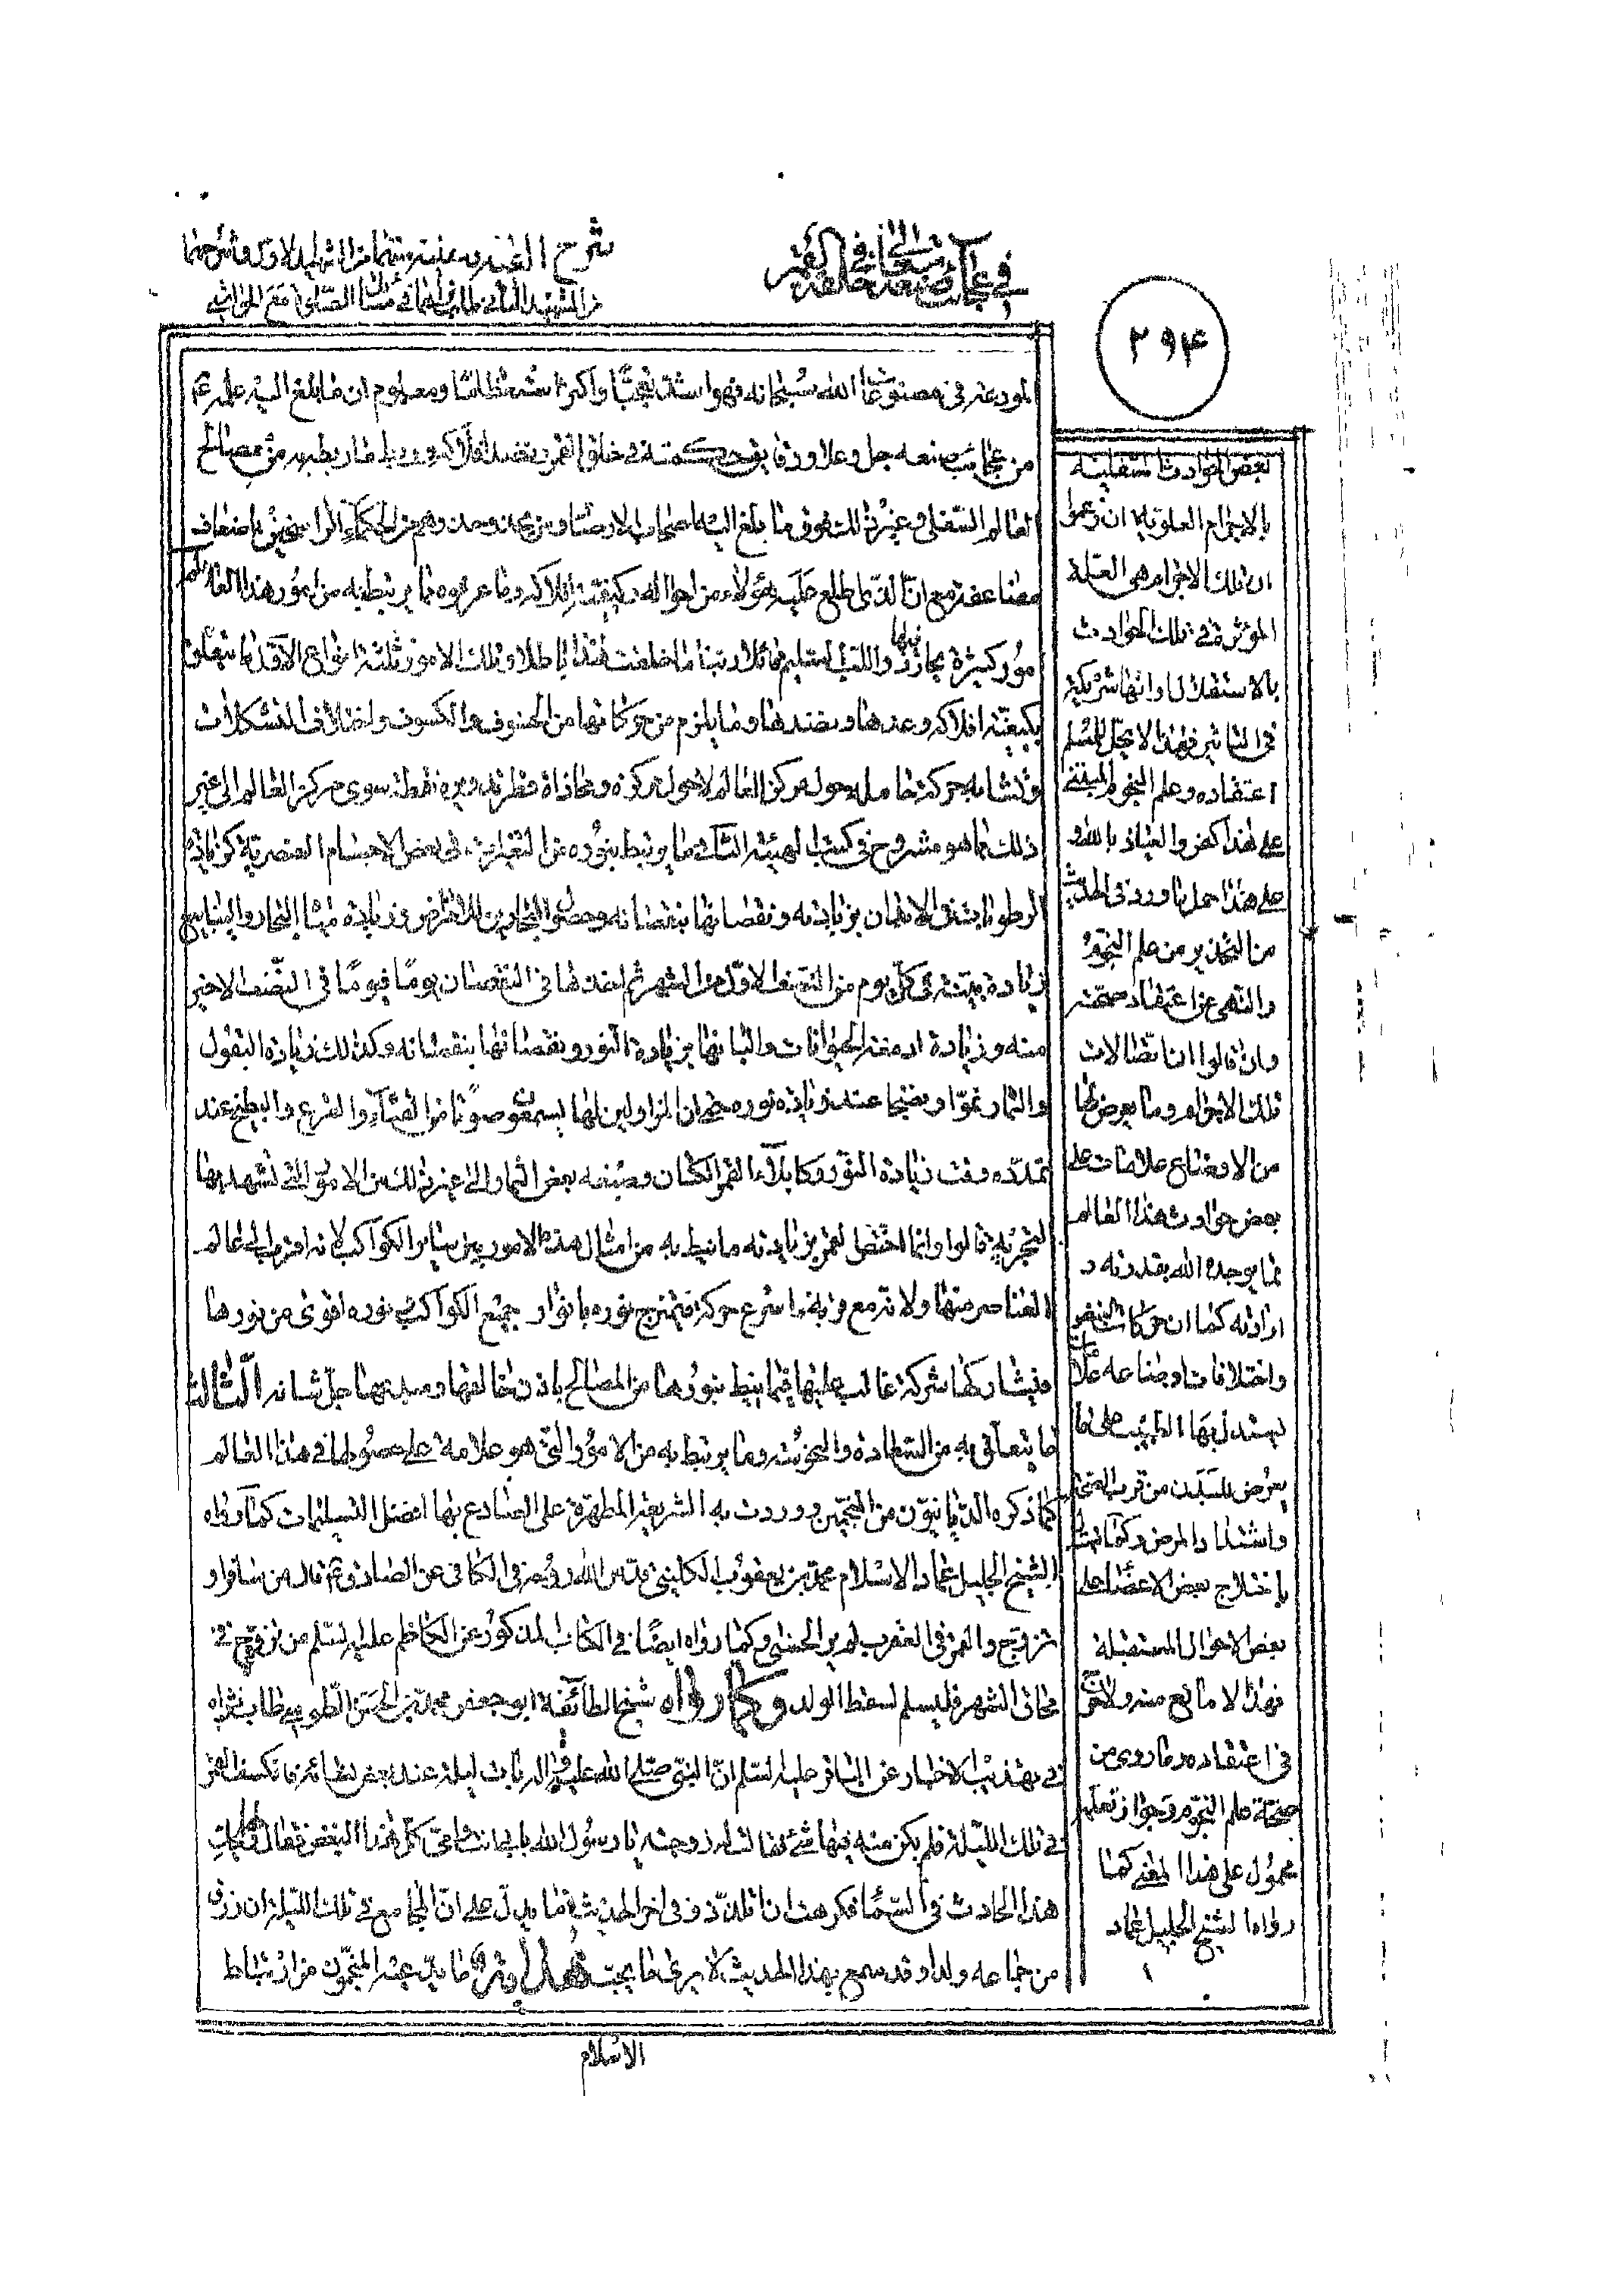 في عجائب صنعه في خلقة القمر
٢٩٤
المودعة في مصنوعاته الله سبحانه فهو اشد تعجبا واكثر استعظاما ومعلوم ان ما بلغ اليه علمه ع
من عجائب صنعه جل وعلا ودقايق حكمته في خلق القمر ونضد افلاكه وربط ما ربطه به من مصالح
العالم السفلى وغير ذلك فوق ما بلغ اليه اصحاب الارصاد ومن يحذو حذوهم من الحكماء الراسخين باضعاف
مضاعفة مع ان الذى اطلع عليه هؤلاء من احواله وكيفية افلاكه وما عرفوه مما يرتبط به من امور هذا العالم
امور كثيرة يحار فيها ذو اللب السليم قائلا ربنا ما خلقت هذا باطلا وتلك الامور ثلثة انواع الاول ما يتعلق
بكيفية افلاكه وعدها ونضدها وما يلزم من حركاتها من الخسوف والكسوف واختلاف التشكلات
وتشابه حركة حامله حول مركز العالم لا حول مركزه ومحاذاة قطر تدويره نقطة سوى مركز العالم الى غير
ذلك مما هو مشروح في كتب الهيئة الثانى ما يرتبط بنوره من التغيرات في بعض الاجسام العنصرية كزيادة
الرطوبات في الابدان بزيادته ونقصانها بنقصانه وحصول البحارين للامراض وزيادة مياه البحار والينابيع
زيادة بينة في كل يوم من النصف الاول من الشهر ثم اخذها في النقصان يوما فيوما في النصف الاخير
منه وزيادة ادمغة الحيوانات والبانها بزيادة النور ونقصانها بنقصانه وكذلك زيادة البقول
والثمار نموا ونضجا عند زيادة نوره حتى ان المزاولين لها يسمعون صوتا من القثاء والقرع والبطيخ عند
تمدده وقت زيادة النور وكابلاء القمر الكتان وصبغه بعض الثمار الى غير ذلك من الامور التى تشهد بها
التجربة قالوا وانما اختص القمر بزيادته ما نيط به من امثال هذه الامور بين سائر الكواكب لانه اقرب الى عالم
العناصر منها ولانه مع قربه اسرع حركة فيمتزج نوره بانوار جميع الكواكب ونوره اقوى من نورها
فيشاركها شركة غالب عليها فيما نيط بنورها من المصالح باذن خالقها ومبدعها جل شانه الثالث
ما يتعلق به من السعادة والنحوسة وما يرتبط به من الامور التى هو علامة على حصولها في هذا العالم
كما ذكره الديانيون من المنجمين ووردت به الشريعة المطهرة على الصادع بها افضل التسليمات كما رواه
الشيخ الجليل عماد الاسلام محمد بن يعقوب الكلينى قدس الله روحه في الكافى عن الصادق ع قال من سافر او
تزوج والقمر في العقرب لم ير الحسنى وكما رواه ايضا في الكتاب المذكور عن الكاظم عليه السلم من تزوج في
محاق الشهر فليسلم لسقط الولد وكما رواه شيخ الطائفة ابو جعفر محمد بن الحسن الطوسى طاب ثراه
في تهذيب الاخبار عن الباقر عليه السلم ان النبى صلى الله عليه واله بات ليلة عند بعض نسائه فانكسف القمر
في تلك الليلة فلم يكن منه فيها شئ فقالت له زوجته يا رسول الله بابى انت وامى كل هذا البغض فقال ويحك
هذا الحادث في السماء فكرهت ان اتلذذ وفى اخر الحديث ما يدل على ان المجامع في تلك الليلة ان رزق
من جماعه ولدا وقد سمع بهذا الحديث لا يرى ما يحب هداية ما يدعيه المنجمون من ارتباط
بعض الحوادث السفلية
بالاجرام العلوية ان زعموا
ان تلك الاجرام هى العلة
المؤثرة في تلك الحوادث
بالاستقلال او انها شريكة
في التاثير فهذا لا يحل للمسلم
اعتقاده وعلم النجوم المبتنى
على هذا كفر والعياذ بالله و
على هذا حمل ما ورد في الحديث
من التحذير من علم النجوم
والنهى عن اعتقاد صحته
وان قالوا ان اتصالات
تلك الاجرام وما يعرض لها
من الاوضاع علامات على
بعض حوادث هذا العالم
مما يوجده الله بقدرته و
ارادته كما ان حركات النبض
واختلافات اوضاعه علامات
يستدل بها الطبيب على ما
يعرض للبدن من قرب الصحة
واشتداد المرض وكما يستدل
باختلاج بعض الاعضاء على
بعض الاحوال المستقبلة
فهذا لا مانع منه ولا حرج
في اعتقاده وما روى من
صحة علم النجوم وجواز تعلمه
محمول على هذا المعنى كما
رواه الشيخ الجليل عماد
الاسلام